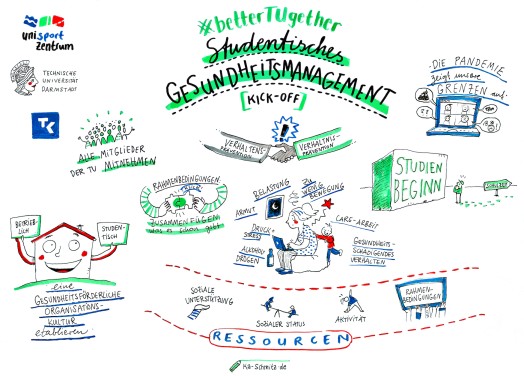 #betterTUgether
Studentisches
GESUNDHEITSMANAGEMENT
[KICK-OFF]
unisport
zentrum
TECHNISCHE
UNIVERSITÄT
DARMSTADT
TK
ALLE MITGLIEDER
DER TU MITNEHMEN
VERHALTENS-
PRÄVENTION
VERHÄLTNIS-
PRÄVENTION
DIE PANDEMIE
zeigt unsere
GRENZEN auf
RAHMENBEDINGUNGEN
ZUSAMMENFÜGEN
was es schon gibt
BELASTUNG
ZU WENIG
BEWEGUNG
ARMUT
DRUCK +
STRESS
ALKOHOL
DROGEN
CARE-ARBEIT
GESUNDHEITS-
SCHÄDIGENDES
VERHALTEN
STUDIEN
BEGINN
BETRIEB-
LICH
STUDEN-
TISCH
eine
GESUNDHEITSFÖRDERLICHE
ORGANISATIONS-
KULTUR
etablieren
SOZIALE
UNTERSTÜTZUNG
SOZIALER STATUS
AKTIVITÄT
RAHMEN-
BEDINGUNGEN
RESSOURCEN
Ka-Schmitz.de